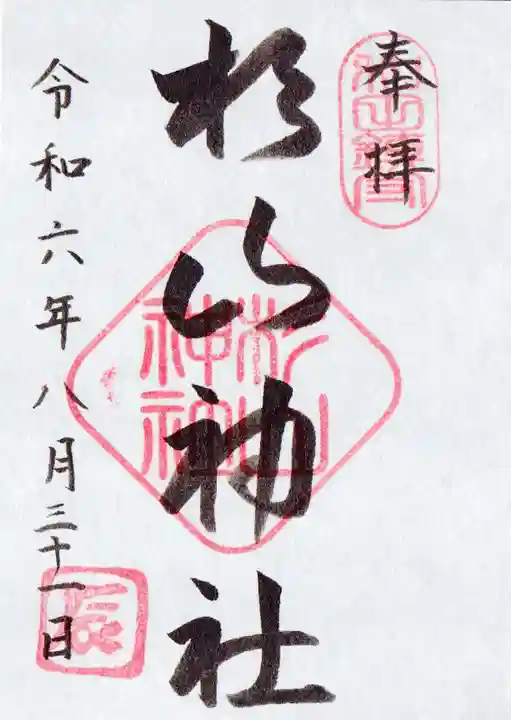 奉拝
杉山神社
杉山神社
令和六年八月三十一日